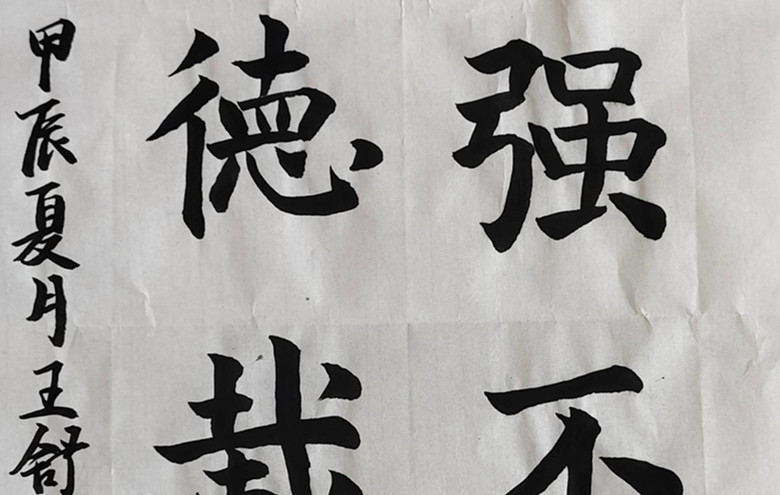 强不
德载
甲辰夏月王舒